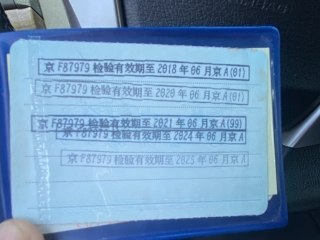 京 F87979 检验有效期至 2018 年 06 月京 A(01)
京 F87979 检验有效期至 2020 年 06 月京 A(01)
京 F87979 检验有效期至 2021 年 06 月京 A(99)
京 F87979 检验有效期至 2024 年 06 月京 A
京 F87979 检验有效期至 2025 年 06 月京 A